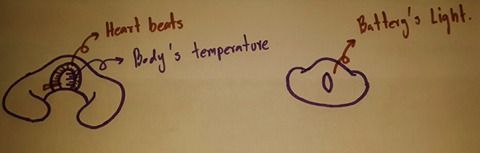 Heart beats
Body's temperature
Battery's Light.